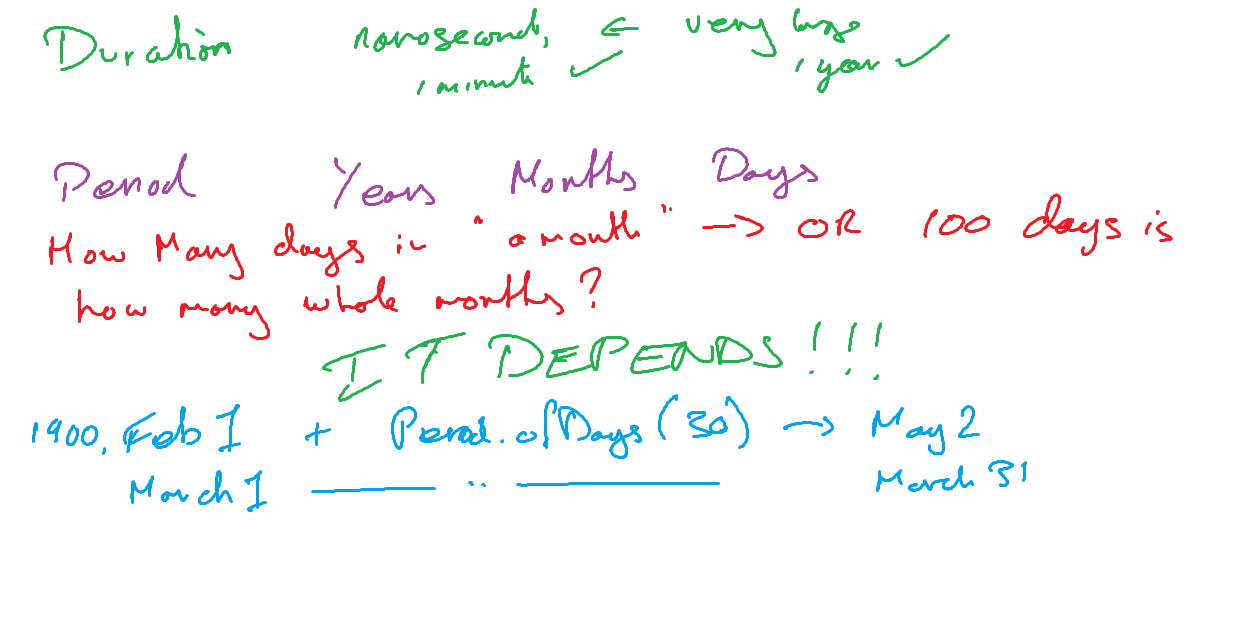 Duration nanosecond, ← very large
1 minute ✓ 1 year ✓
Period Years Months Days
How Many days in "a month" → OR 100 days is
how many whole months?
IT DEPENDS!!!
1900, Feb 1 + Period.ofDays(30) → May 2
March 1 —— " —— March 31